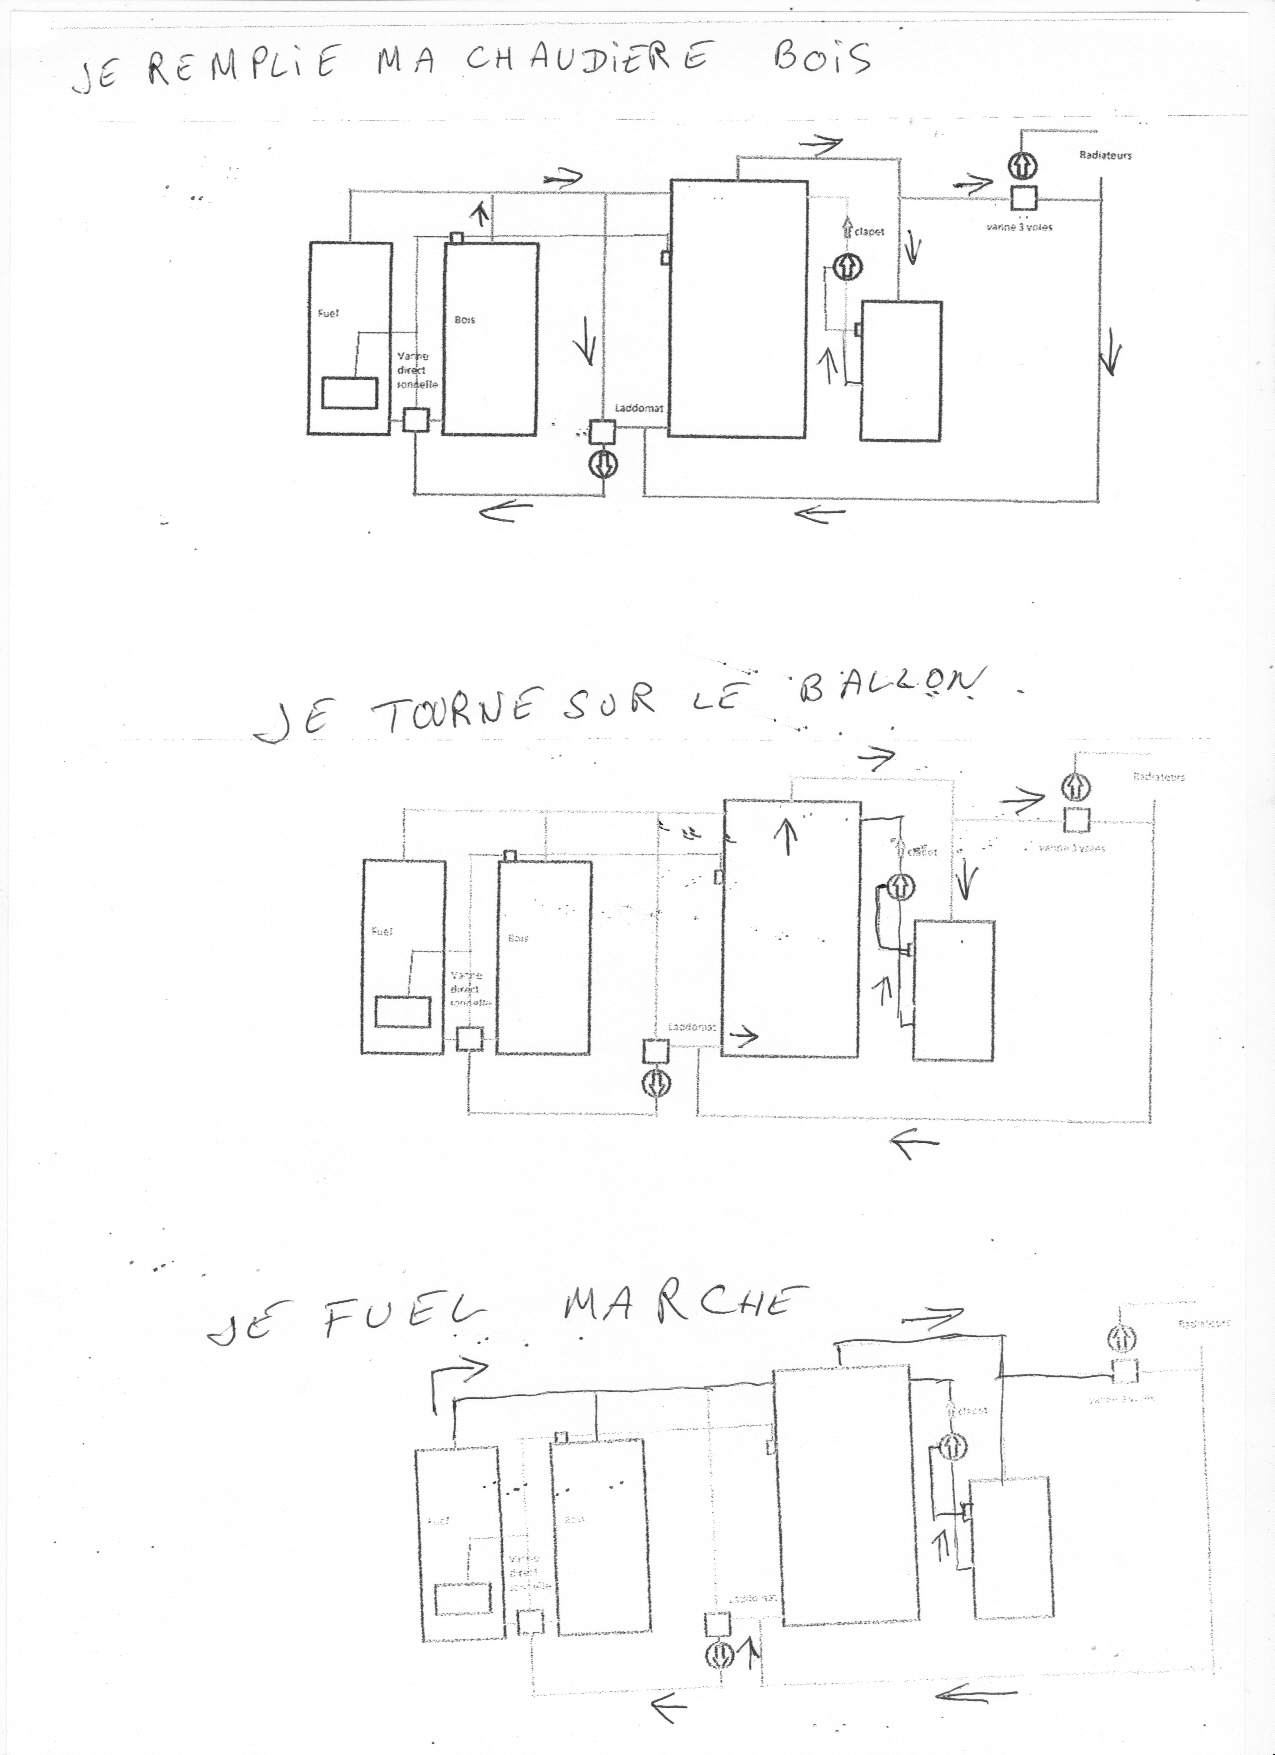 JE REMPLIE MA CHAUDIERE BOIS
Radiateurs
clapet
vanne 3 voies
Fuel
Bois
Vanne
direct
ionnelle
Laddomat
JE TOURNE SUR LE BALLON.
Radiateurs
clapet
vanne 3 voies
Fuel
Bois
Vanne
direct
ionnelle
Laddomat
JE FUEL MARCHE
Radiateurs
clapet
vanne 3 voies
Fuel
Bois
Vanne
direct
ionnelle
Laddomat